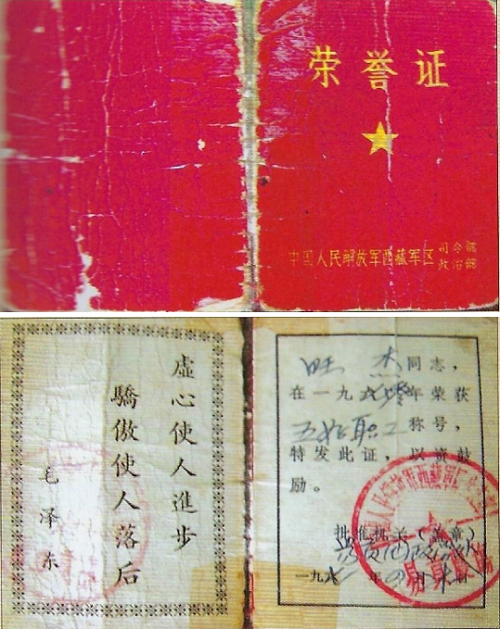 荣誉证
中国人民解放军西藏军区
司令部
政治部
虚心使人進步
驕傲使人落后
毛泽东
旺 杰同志，
在一九 年荣获
五好职工称号，
特发此证，以资鼓
励。
批准机关（盖章）
一九 年 月 日